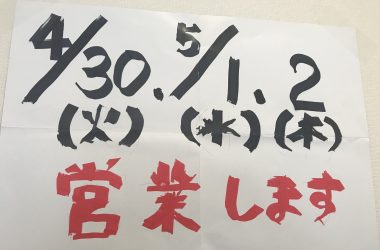 4/30、5/1、2
(火) (水)(木)
営業します